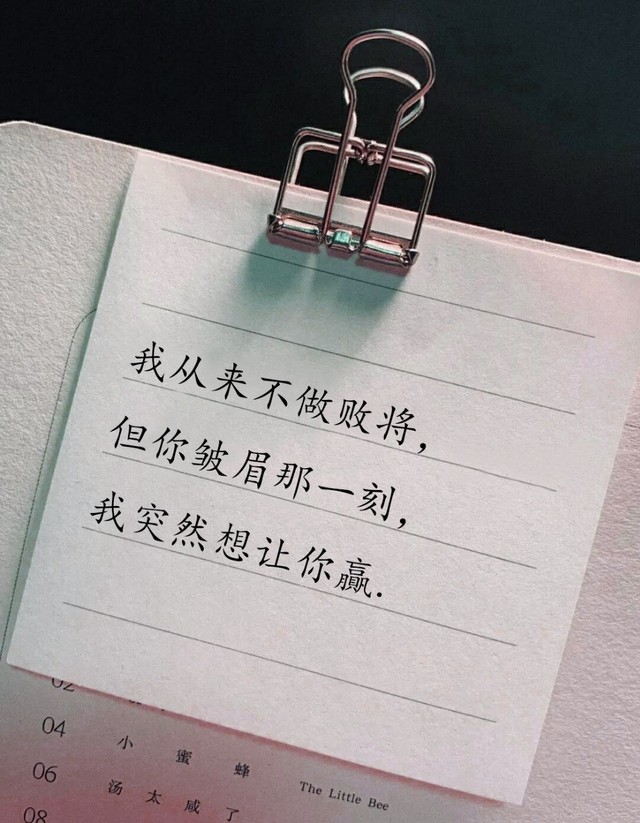 我从来不做败将,
但你皱眉那一刻,
我突然想让你赢.
02
04 小蜜蜂 The Little Bee
06 汤太咸了
08